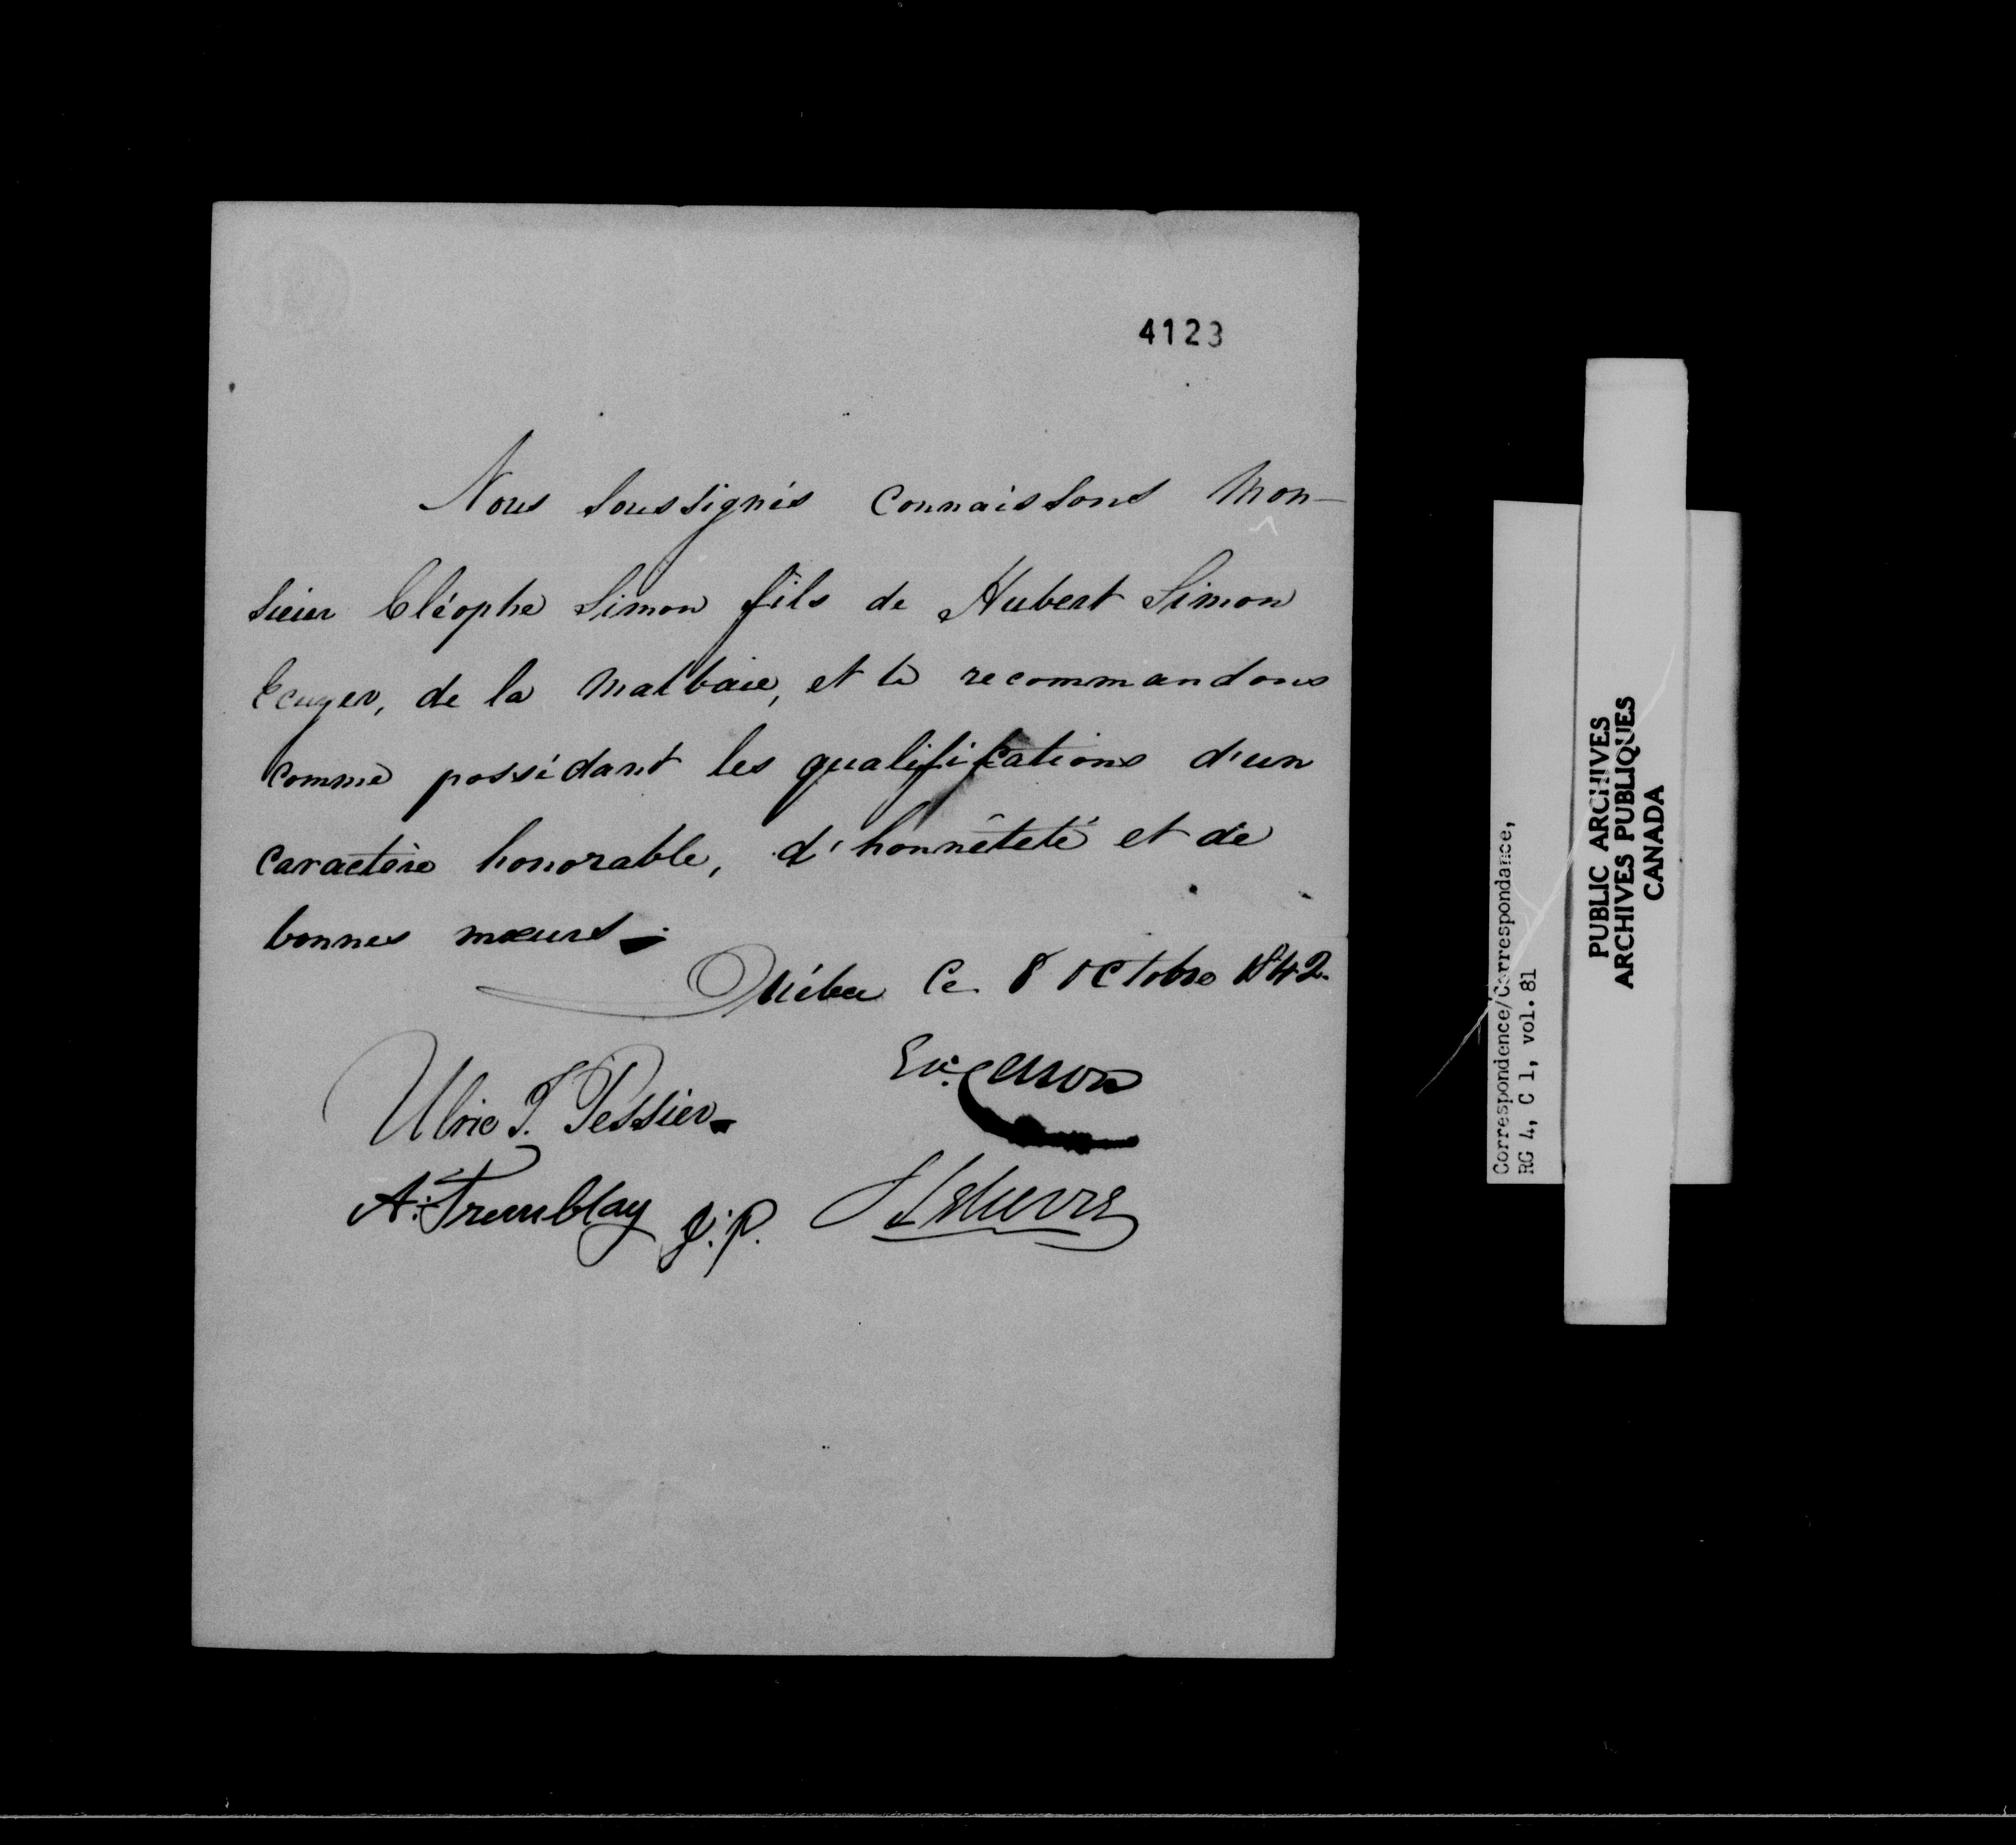 4123
Nous soussignés connaissons Mon-
sieur Cléophe Simon fils de Hubert Simon
Ecuyer, de la Malbaie, et le recommandons
comme possédant les qualifications d'un
caractère honorable, d'honnêteté et de
bonnes mœurs.
Québec ce 8 octobre 1842.
Ulric J. Tessier
A. Tremblay J.P.
Correspondence/Correspondance,
RG 4, C 1, vol. 81
PUBLIC ARCHIVES
ARCHIVES PUBLIQUES
CANADA